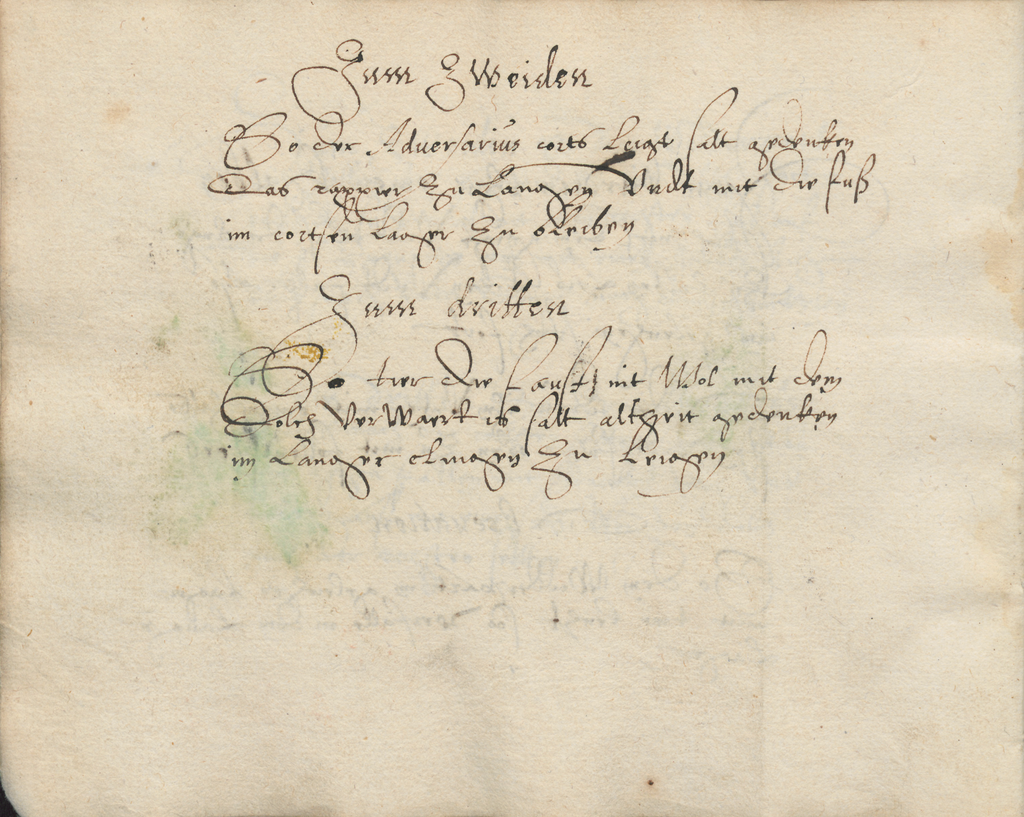 Zum Zweiden
So der Adversarius corts leigt salt gedenken
Das rappier Zu Langen Undt mit die fuß
im cortsen Laager Zu bleiben
Zum dritten
So die faust nit Wol mit dem
Dolch VerWaert is salt altzeit gedenken
im Langer Zu leigen